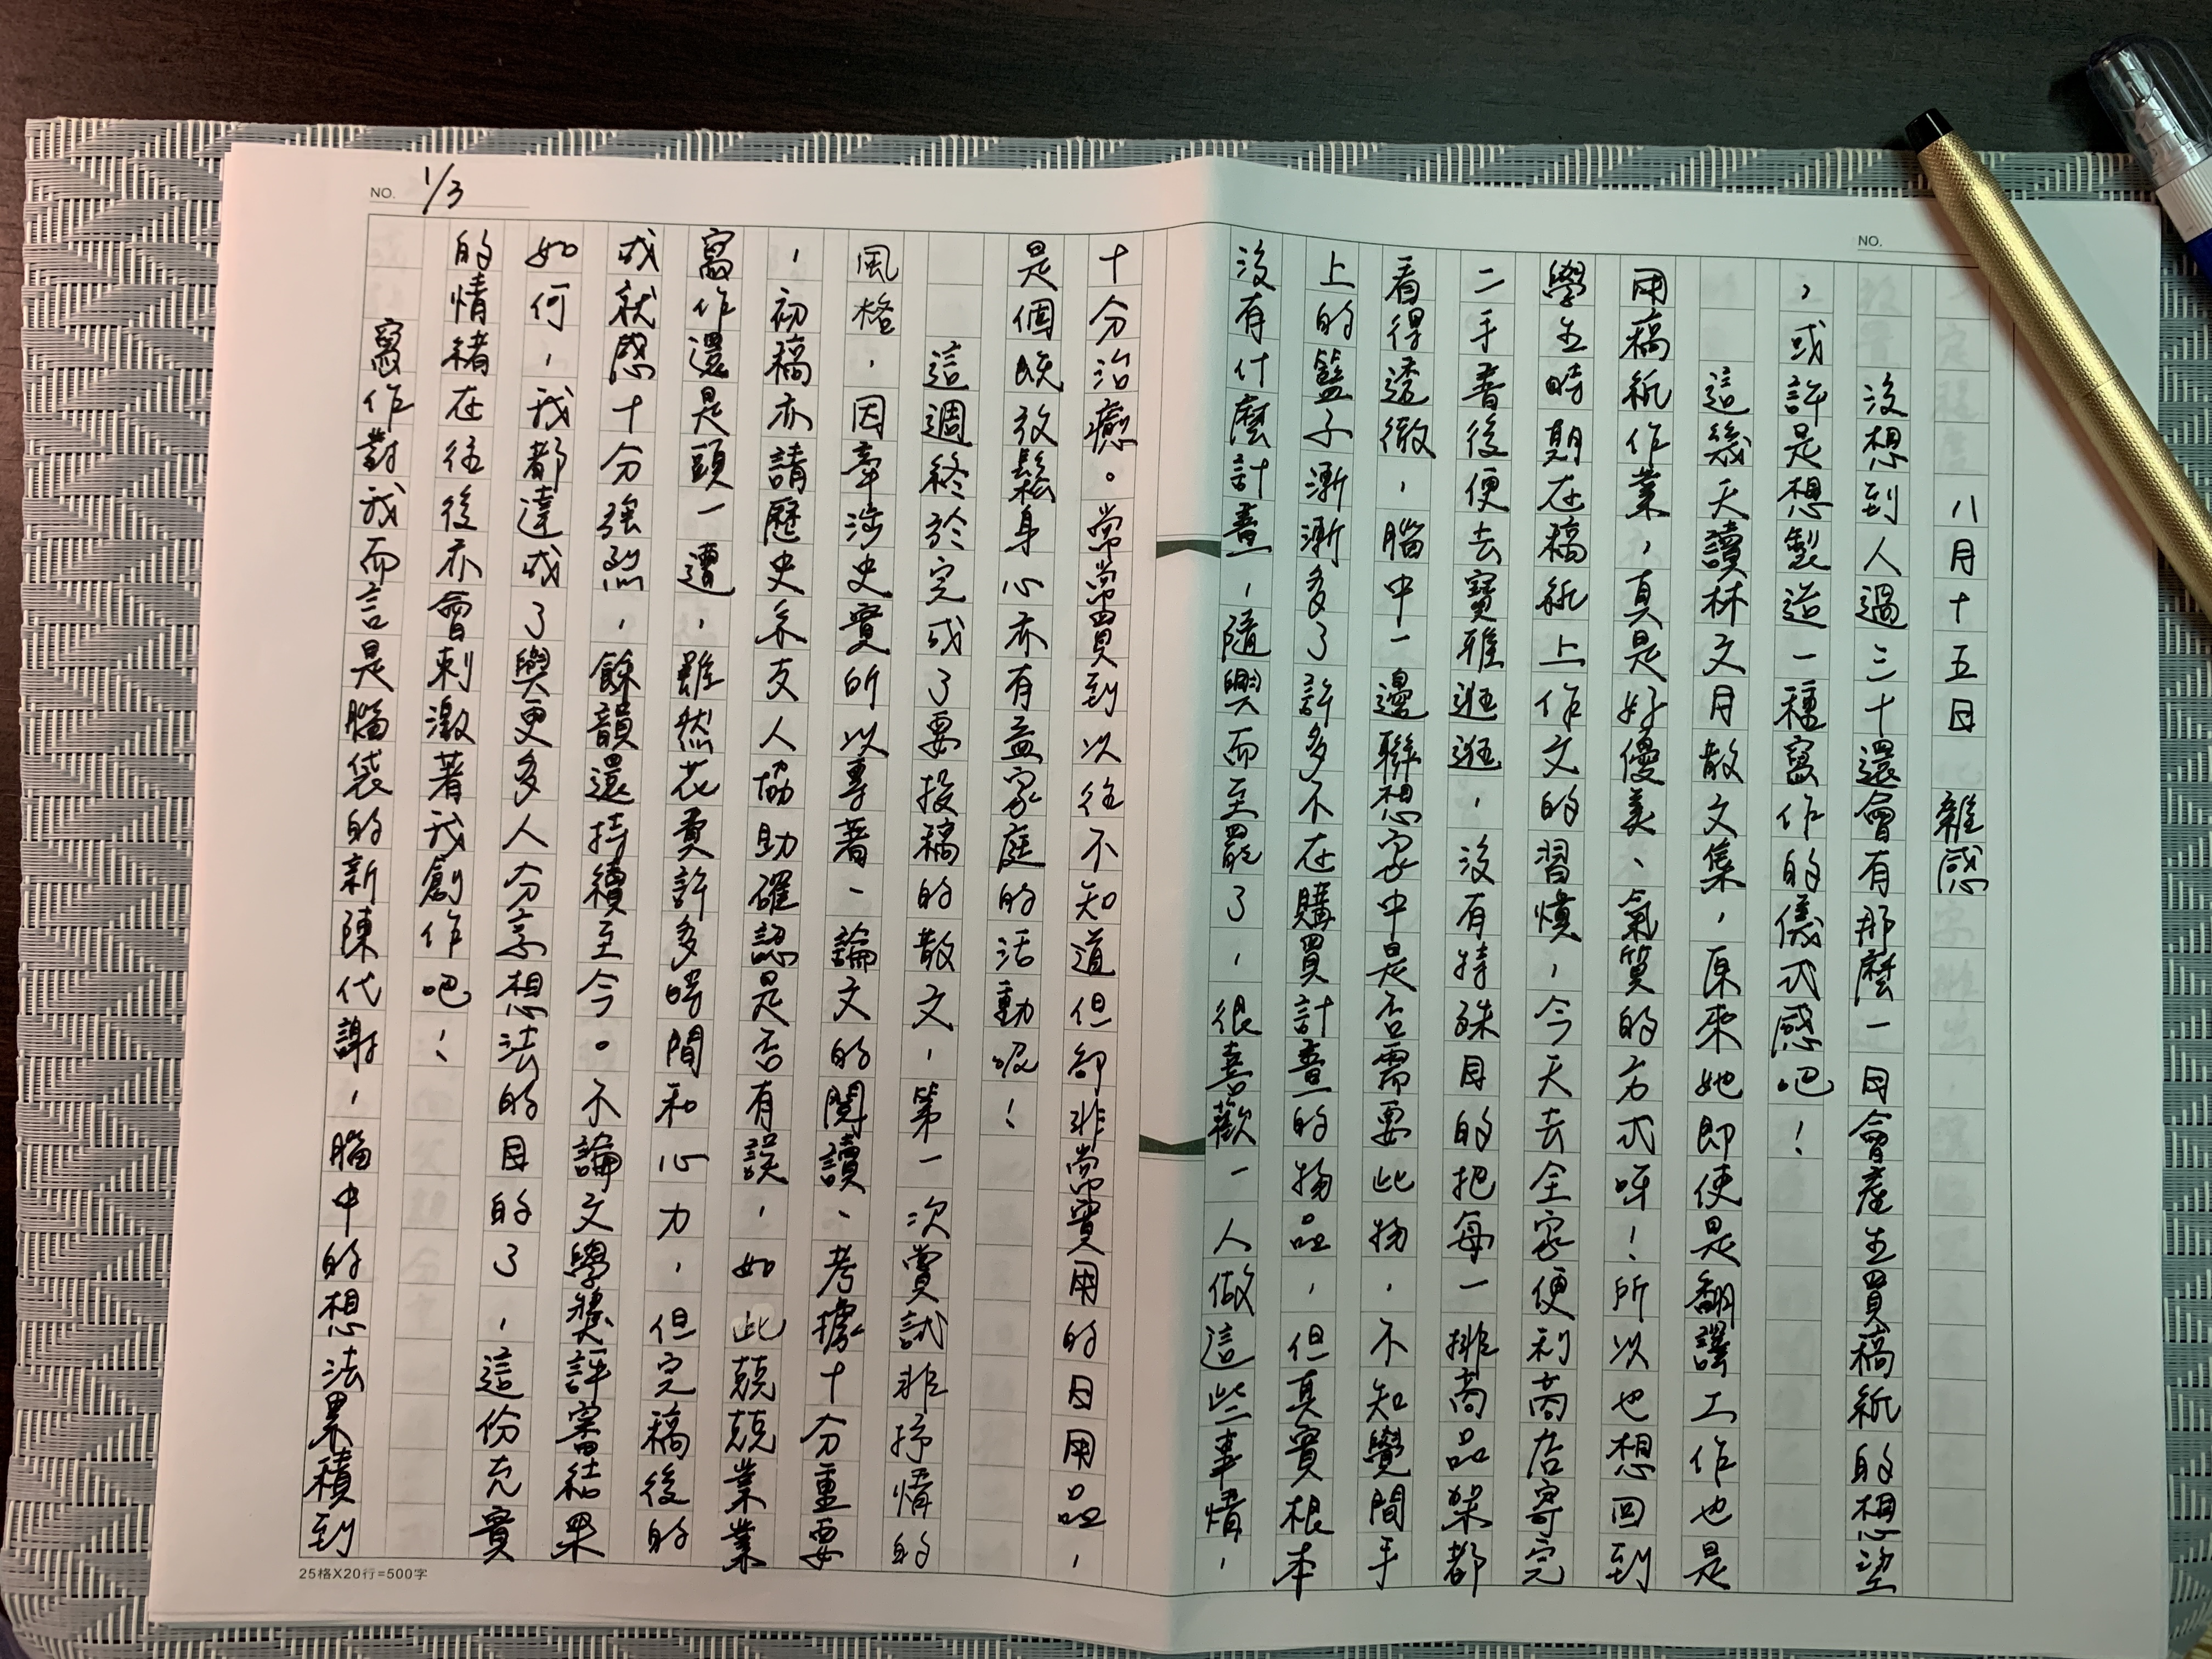 NO.
NO. 1/3
八月十五日 雜感
沒想到人過三十還會有那麼一日會產生買稿紙的想望
,或許是想製造一種寫作的儀式感吧!
這幾天讀林文月散文集,原來她即使是翻譯工作也是
用稿紙作業,真是好優美、氣質的方式呀!所以也想回到
學生時期在稿紙上作文的習慣,今天去全家便利商店寄完
二手書後便去寶雅逛逛,沒有特殊目的把每一排商品架都
看得透徹,腦中一邊聯想家中是否需要此物,不知覺間手
上的籃子漸漸多了許多不在購買計畫的物品,但真實根本
沒有什麼計畫,隨興而至罷了,很喜歡一人做這些事情,
十分治癒。常常買到以往不知道但卻非常實用的日用品,
是個既放鬆身心亦有益家庭的活動呢!
這週終於完成了要投稿的散文,第一次嘗試非抒情的
風格,因牽涉史實所以專著、論文的閱讀、考據十分重要
,初稿亦請歷史系友人協助確認是否有誤,如此兢兢業業
寫作還是頭一遭,雖然花費許多時間和心力,但完稿後的
成就感十分強烈,餘韻還持續至今。不論文學獎評審結果
如何,我都達成了與更多人分享想法的目的了,這份充實
的情緒在往後亦會刺激著我創作吧!
寫作對我而言是腦袋的新陳代謝,腦中的想法累積到
25格X20行=500字